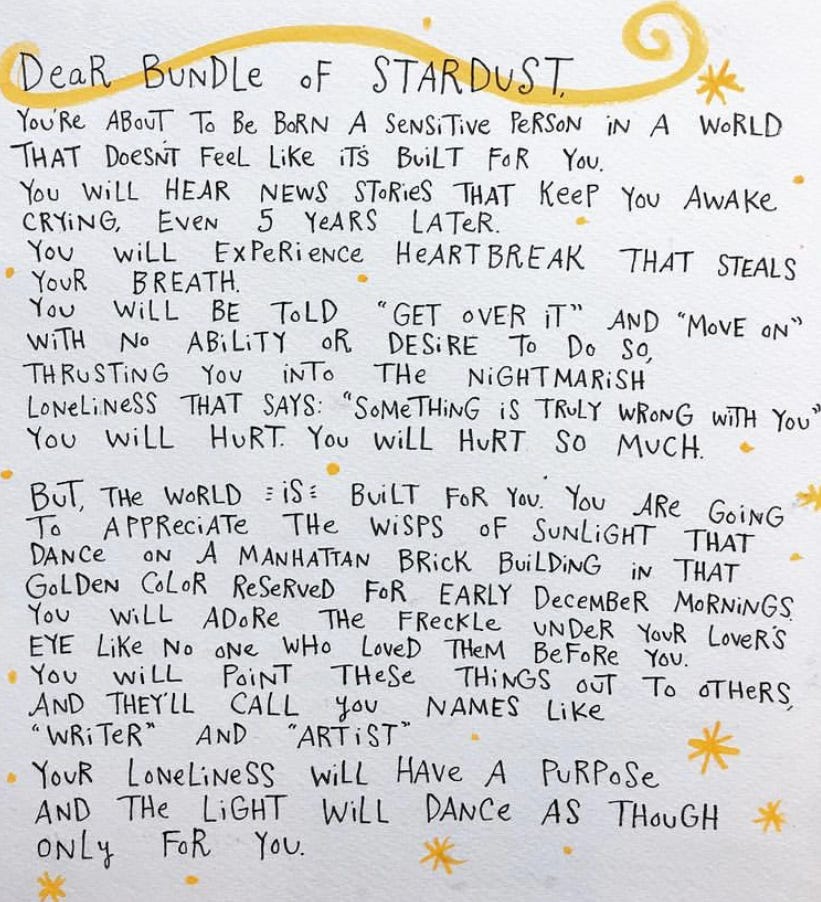 Dear Bundle of Stardust,
You're about to be born a sensitive person in a world
that doesn't feel like it's built for you.
You will hear news stories that keep you awake
crying, even 5 years later.
You will experience heartbreak that steals
your breath.
You will be told "get over it" and "move on"
with no ability or desire to do so,
thrusting you into the nightmarish
loneliness that says: "something is truly wrong with you"
You will hurt. You will hurt so much.
But, the world is built for you. You are going
to appreciate the wisps of sunlight that
dance on a Manhattan brick building in that
golden color reserved for early December mornings.
You will adore the freckle under your lover's
eye like no one who loved them before you.
You will point these things out to others,
and they'll call you names like
"writer" and "artist"
Your loneliness will have a purpose
and the light will dance as though
only for you.